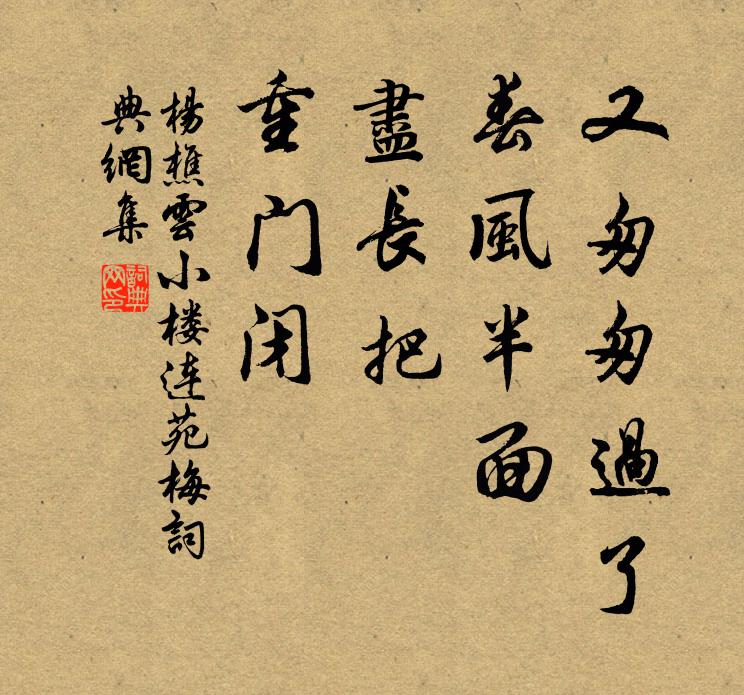 又匆匆過了
春風半面
盡長把
重門闭
楊樵雲小楼連苑梅詞
典網集
詞典
网印